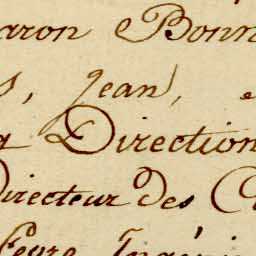 aron Bonn
s, Jean, e
a Direction
Directeur Des C
Fevre Ingéni